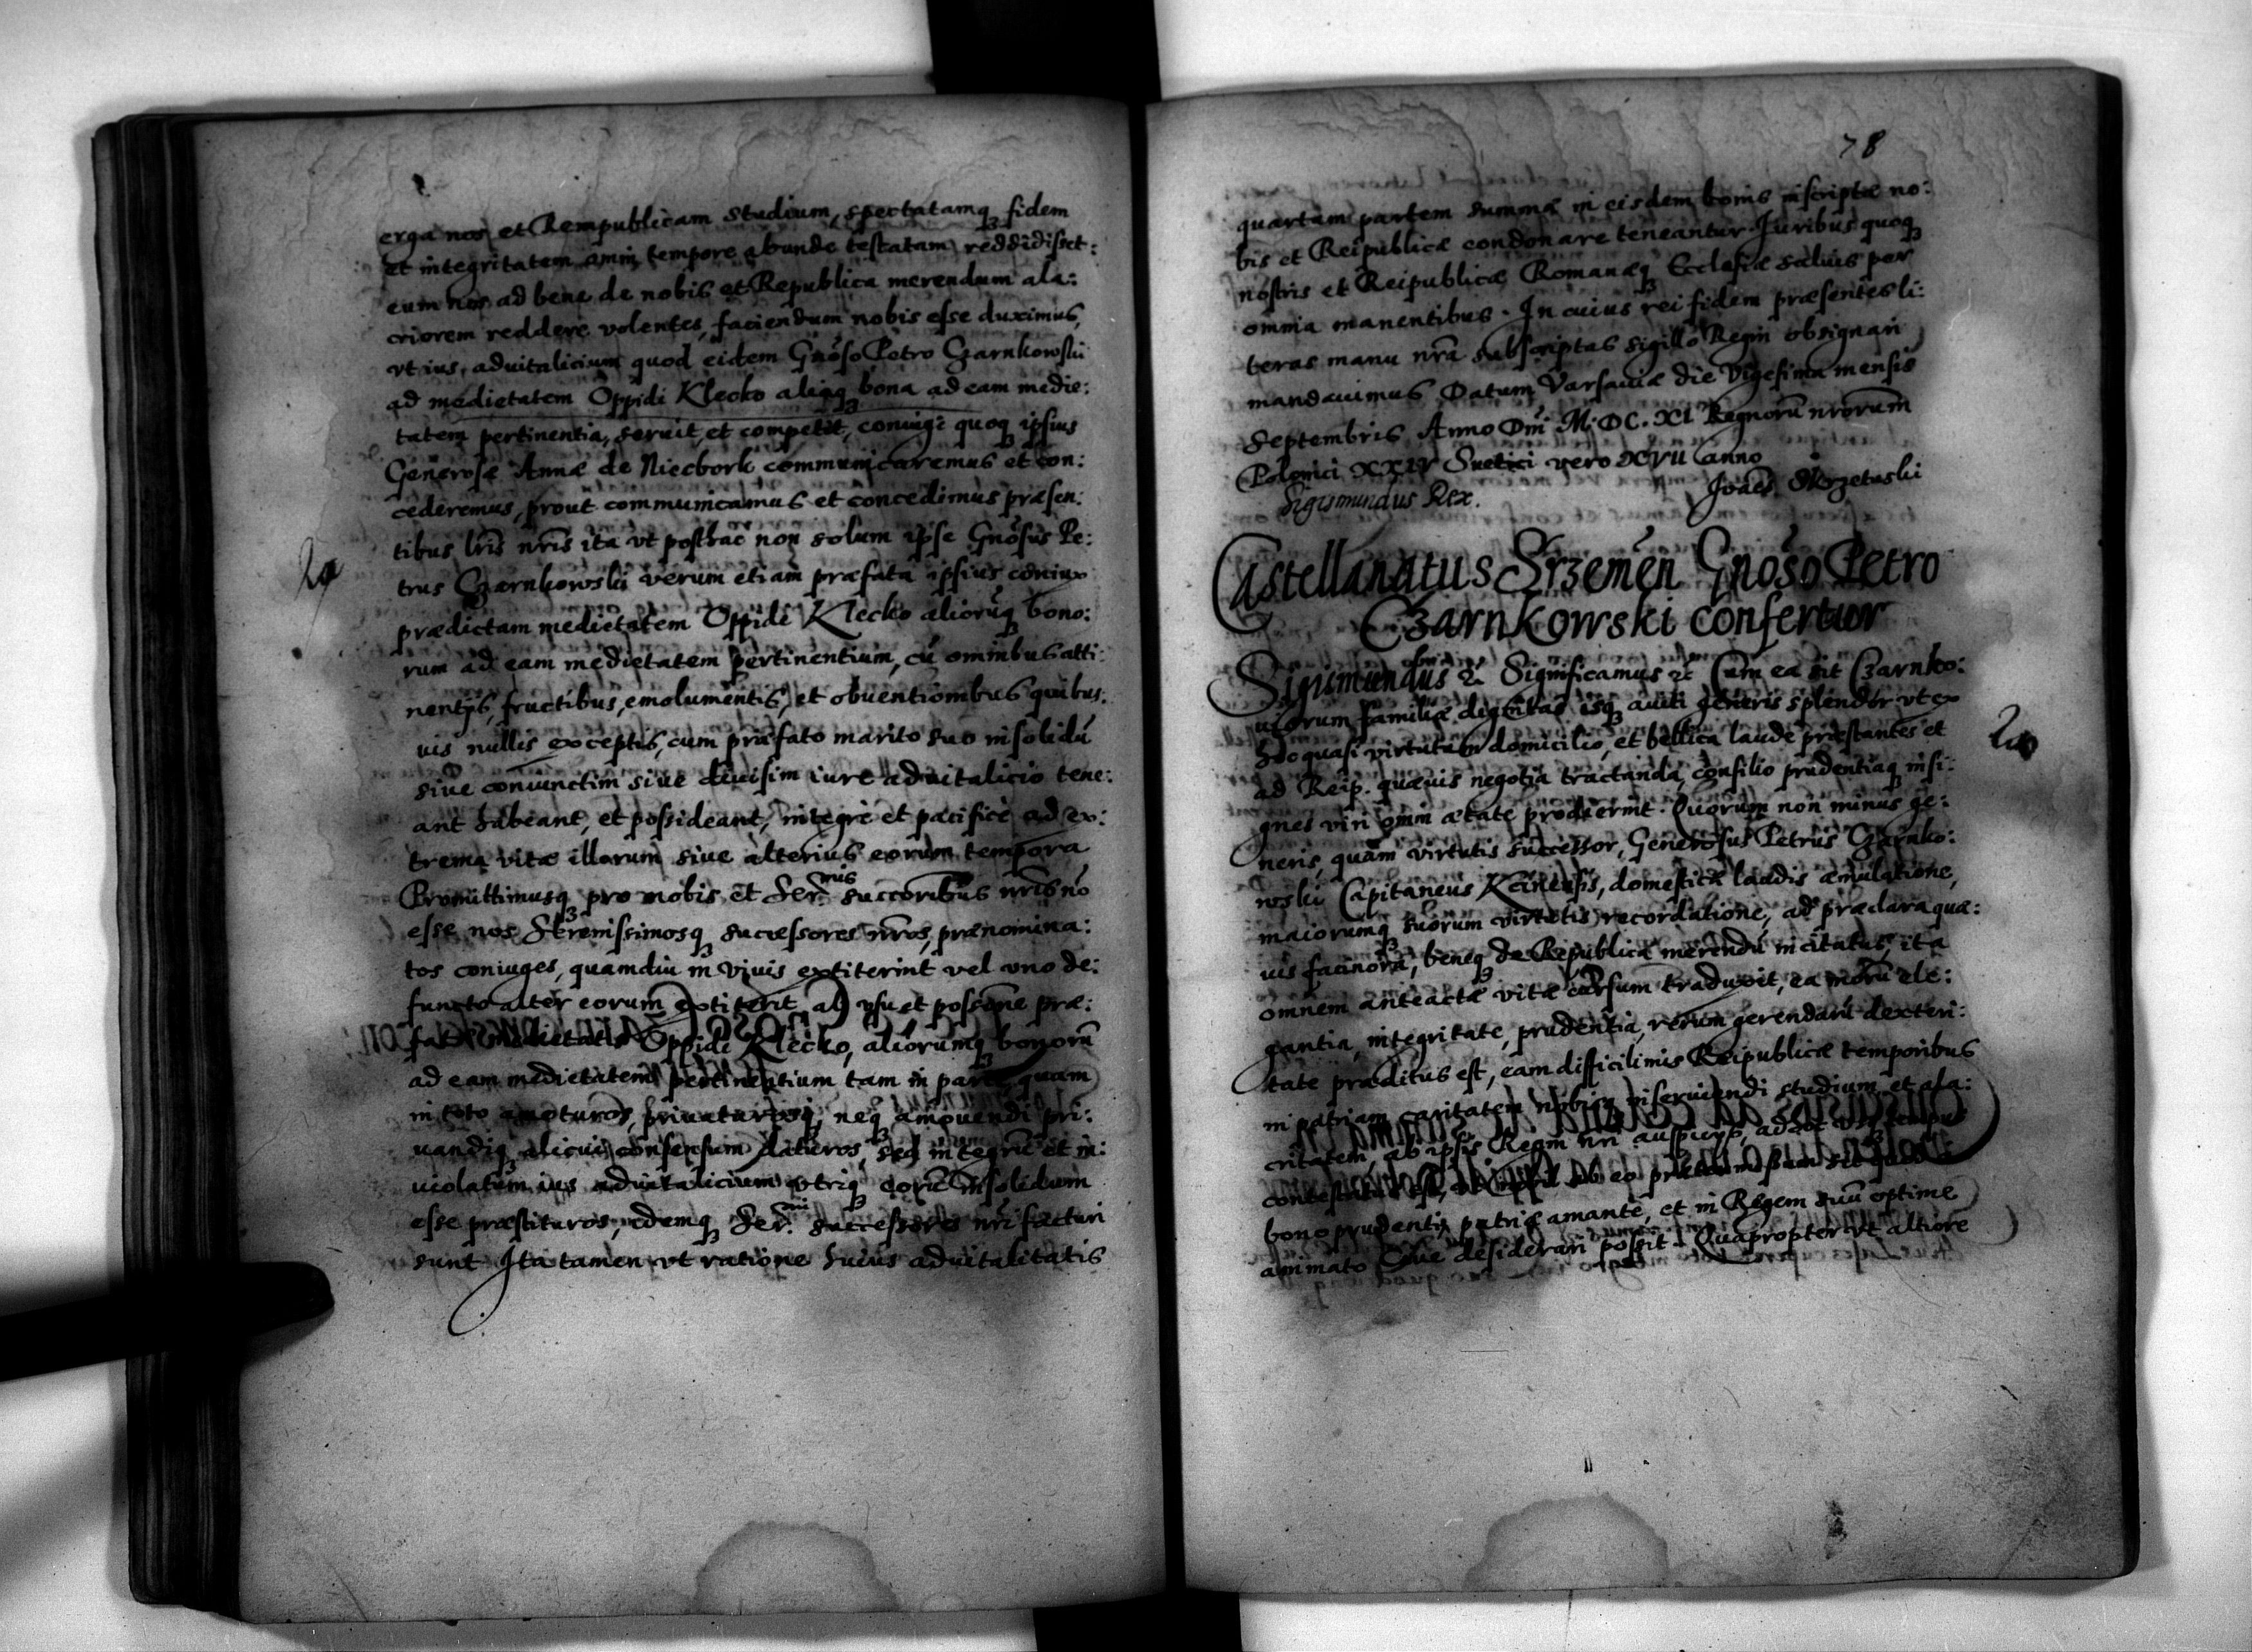 erga nos et Rempublicam studium, spectatamq3 fidem
et integritatem omni tempore abunde testatam reddidisset:
eum nos ad bene de nobis et Republica merendum ala:
criorem reddere volentes, faciendum nobis esse duximus,
vt ius, aduitalicium quod eidem Gnoso Petro Czarnkowski
ad medietatem Oppidi Klecko aliaq3 bona ad eam medie:
tatem pertinentia, seruit, et competit, coniugi quoq3 ipsius
Generosæ Annæ de Niecbork communicaremus et con:
cederemus, prout communicamus et concedimus præsen:
tibus lris nris ita vt posthac non solum ipse Gnosus Pe:
trus Czarnkowski verum etiam præfata ipsius coniux
prædictam medietatem Oppidi Klecko aliorūq3 bono:
rum ad eam medietatem pertinentium, cū omnibus atti:
nentijs, fructibus, emolumentis, et obuentionibus quibus:
uis nullis exceptis, cum præfato marito suo in solidū
siue coniunctim siue diuisim iure aduitalicio tene:
ant habeant, et possideant, integrè et pacificè ad ex:
trema vitæ illorum siue alterius eorum tempora
Promittimusq3 pro nobis et Ser.mis succoribus nris nō
esse nos Serenissimosq3 successores nros, prænomina:
tos coniuges, quamdiu in viuis extiterint vel vno de:
functo alter eorum extiterit, ab vsu et possone præ:
fatæ medietatis Oppidi Klecko, aliorumq3 bonorū
ad eam medietatem pertinentium tam in parte quam
in toto amoturos, priuaturosq3, neq3 amouendi pri:
uandiq3 alicui consensum daturos, sed integrū et in:
uiolatum ius aduitalicium vtriq3 eorū in solidum
esse præstituros, idemq3 Ser.mi successores nri facturi
sunt Ita tamen vt ratione huius aduitalitatis
78
quartam partem summæ in eisdem bonis inscriptæ no:
bis et Reipublicæ condonare teneantur. Iuribus quoq3
nostris et Reipublicæ Romanæq3 Ecclesiæ saluis per
omnia manentibus. In cuius rei fidem præsentes li:
teras manu nra subscriptas sigillo Regni obsignari
mandauimus Datum Varsauiæ die Vigesima mensis
Septembris Anno Dni M.DC.XI Regnorū nrorum
Polonici XXIV Suetici vero XVII anno
Sigismundus Rex. Joaēs Skrzetuski
Castellanatus Srzemēn Gnoso Petro
Czarnkowski confertur
Sigismundus &c Significamus &c Cum ea sit Czarnko:
uiorum familiæ dignitas isq3 auiti generis splendor vt ex
hoc quasi virtutum domicilio, et bellica laude præstantes et
ad Reip. quæuis negotia tractanda, consilio prudentiaq3 insi:
gnes viri omni ætate prodierint. Quorum non minus ge:
neris, quàm virtutis successor, Generosus Petrus Czarnko:
wski Capitaneus Kcinensis, domesticæ laudis æmulatione,
maiorumq3 suorum virtutis recordatione, ad præclara quæ:
uis facinora, beneq3 de Republica merendū incitatus, ita
omnem anteactæ vitæ cursum traduxit, ea morū ele:
gantia, integritate, prudentia, rerum gerendarū dexteri:
tate præditus est, eam difficilimis Reipublicæ temporibus
in patriam caritatem nobisq3 inseruiendi studium et ala:
critatem, ab ipsis Regni nri auspicijs, ad hoc tempus
contestatus est, vt nihil ab eo prætermissum sit quod
bono prudenti, patriæ amante, et in Regem suū optime
animato Ciue desiderari possit. Quapropter vt altiore